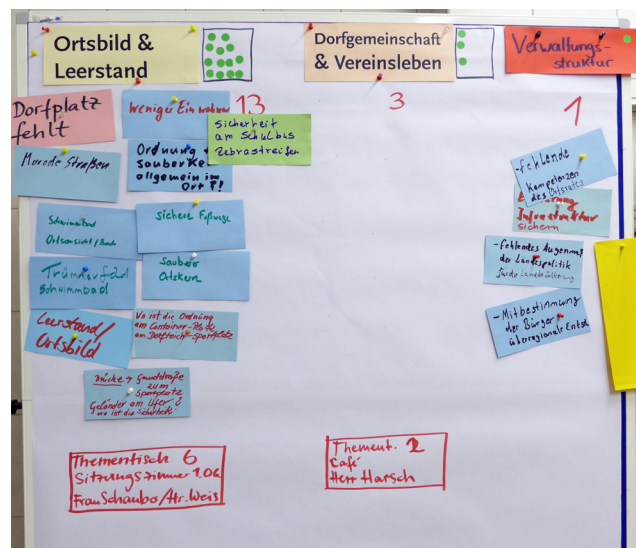 Ortsbild &
Leerstand
Dorfgemeinschaft
& Vereinsleben
Verwaltungs-
struktur
13
3
1
Dorfplatz
fehlt
Weniger Einwohner
Sicherheit
am Schulbus
Zebrastreifen
Marode Straßen
Ordnung +
Sauberkei
allgemein im
Ort ?!
Schwimmbad
Ortsansicht /
sichere Fußwege
Trümmerfeld
Schwimmbad
Sauberer
Ortskern
Leerstand/
Ortsbild
Wo ist die Ordnung
am Container-Platz
am Dorfteich-Sportplatz
Brücke →
zum
Sportplatz
Geländer am Ufer
wo ist die Sicherheit?
-fehlende
Kompetenzen
des Ortsrates
Infrastruktur
sichern
-fehlendes Augenmaß
der Landespolitik
für die Landbevölkerung
- Mitbestimmung
der Bürger
überregionale Entsch
Thementisch 6
Sitzungszimmer 1.06
Frau Schaubs/Hr. Weis
Thement. 2
Café
Herr Harsch